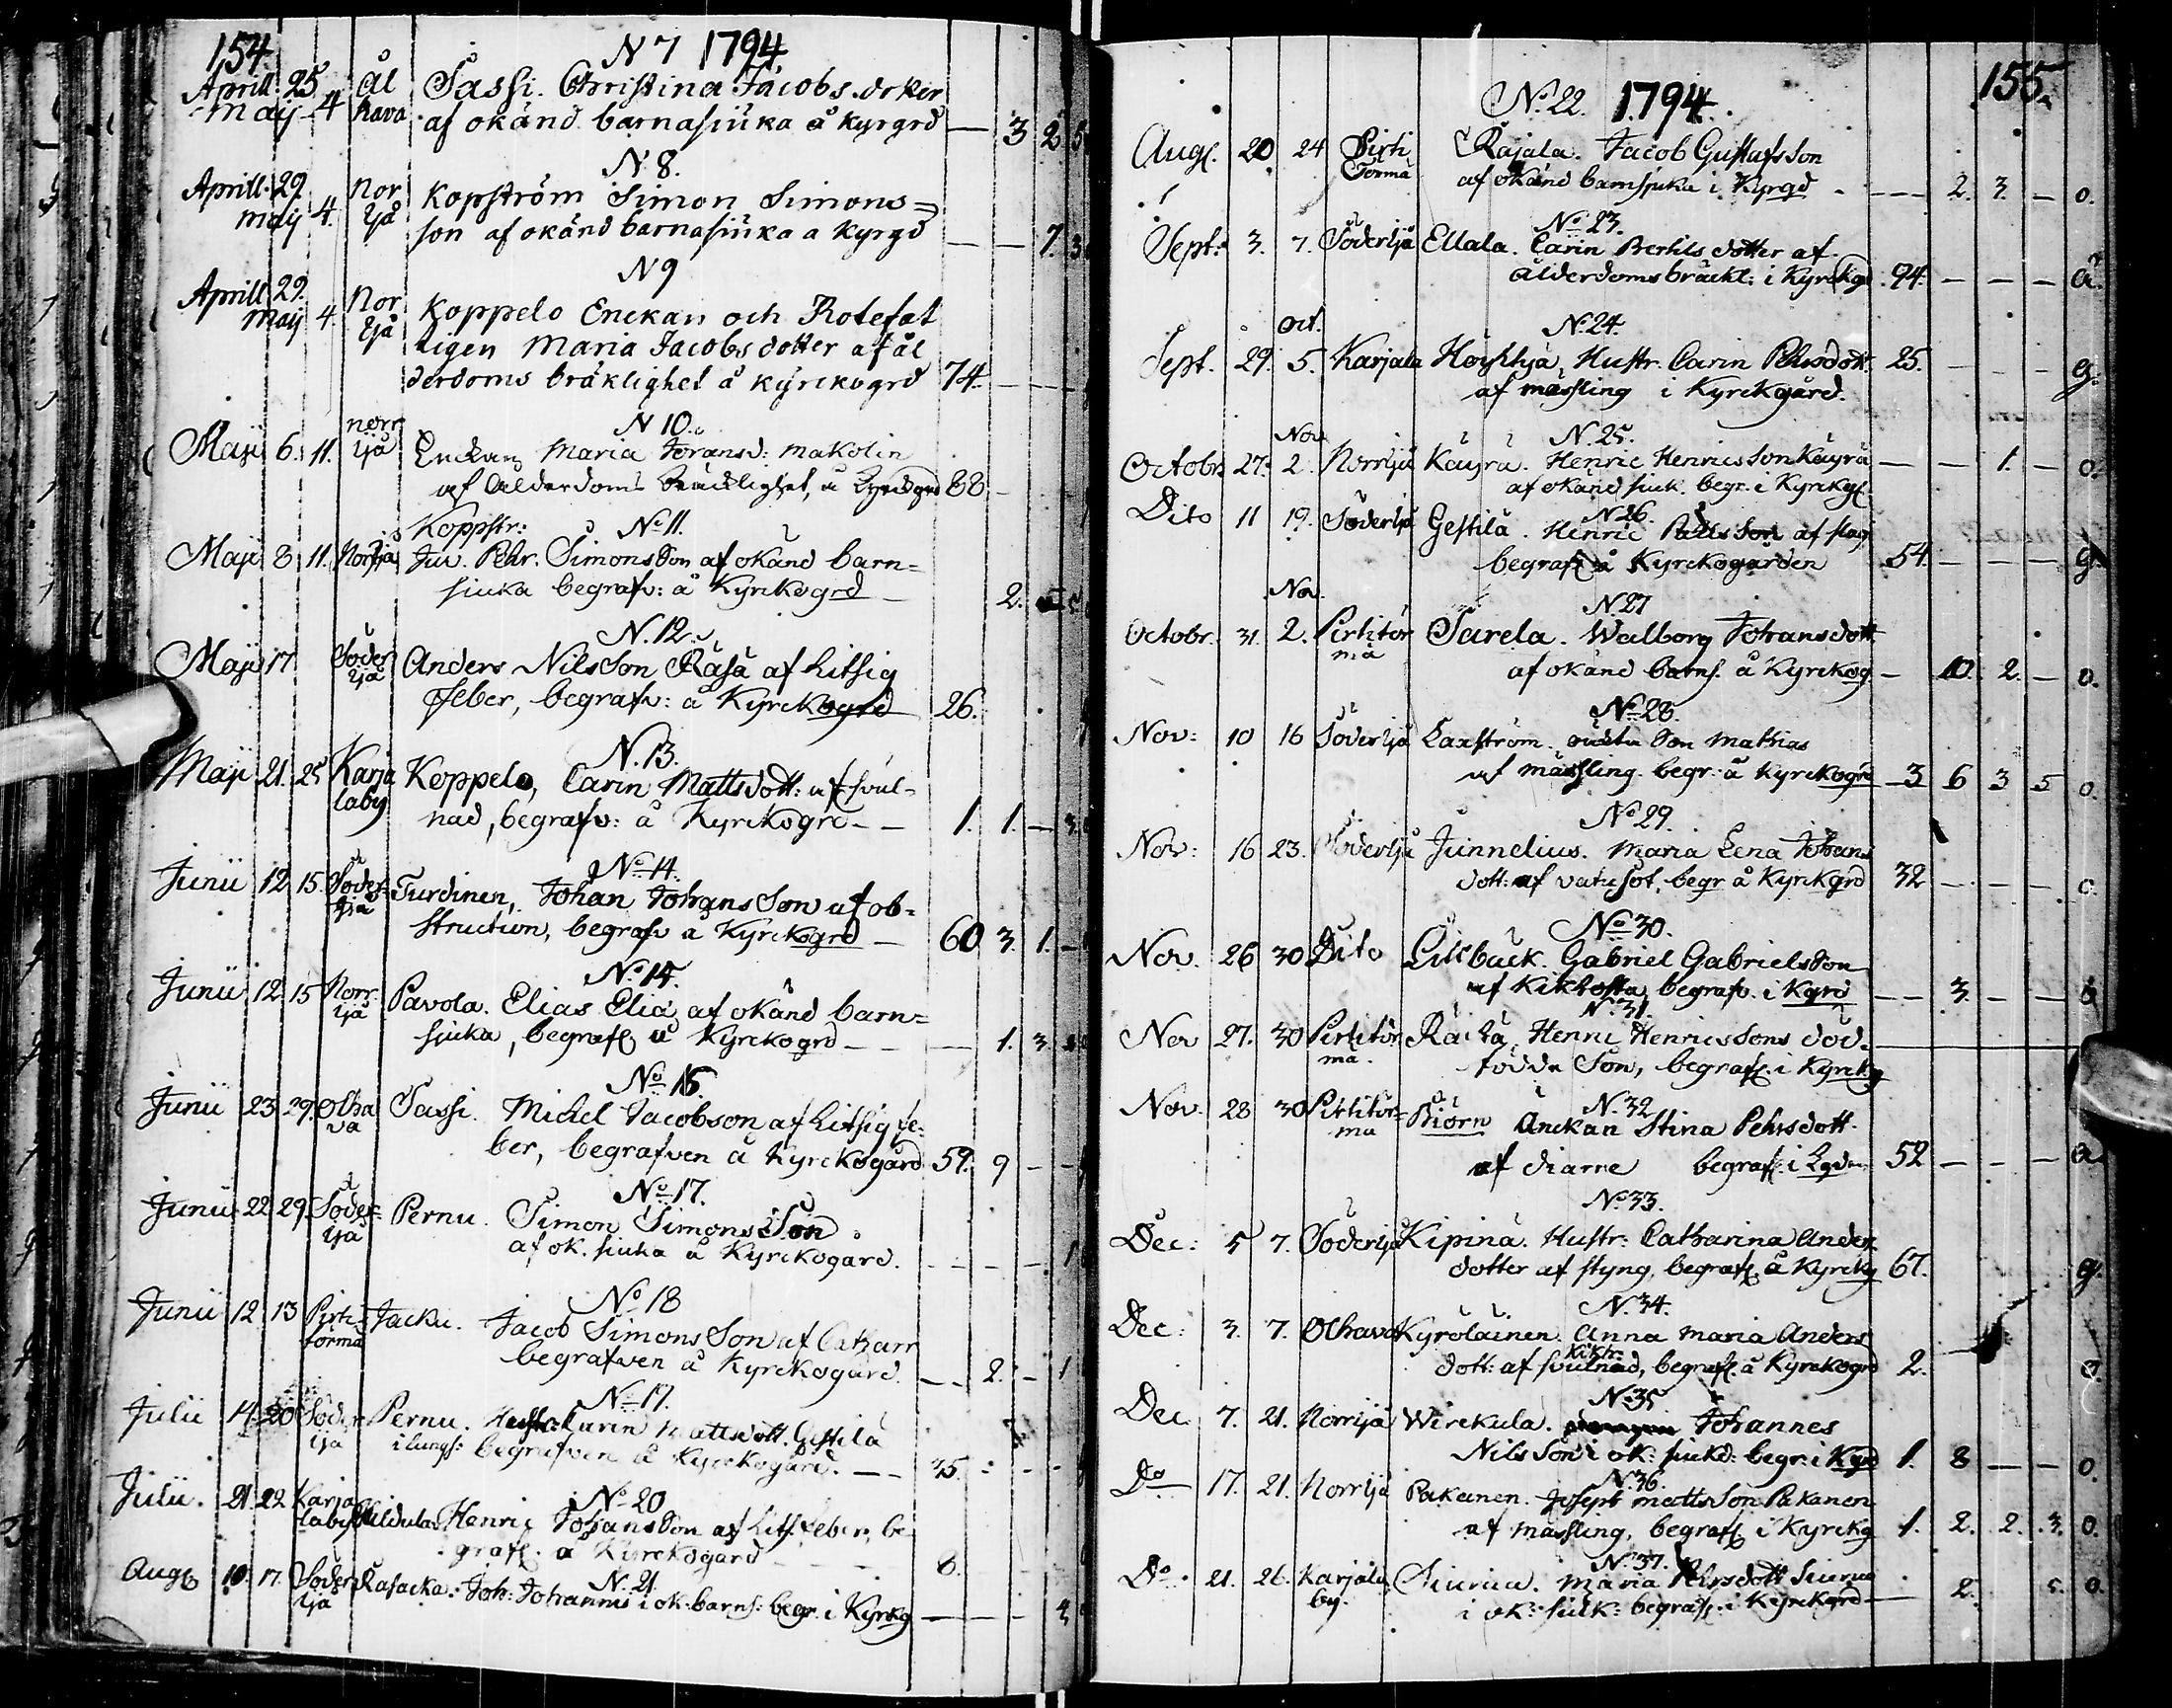 154. N 7 1794.
Aprill. 25 Ål Sassi. Christina Jacobs. dr
Maij 4 hava af okänd barnasiuka å kyrgrd — 3 2 5
N 8.
Aprill. 29. Nor Kopström Simon Simons=
maij 4. ijå son af okänd barnasiuka a kyrgd — — 7. 3
N 9
Aprill 29. Nor Koppelo Enckan och Rotefat
maij 4. ijå tigen Maria Jacobs dotter af ål
derdoms bräklighet å kyrckogrd 74. — —
norr N 10.
Maji 6. 11. ijå Enckan Maria Joransd: makolin
af Ålderdoms bräcklighet, å Kyrckogrd 88 —
Koppstr: No 11.
Maji 8 11. Norrijå Juv. Pehr. Simonsson af okänd barn=
siuka begrafv: å Kyrkogrd — 2.
N. 12.
Maji 17 Söder Anders Nilsson Räsä af hitsig
ijå feber, begrafv: å Kyrckogrd 26.
N. 13.
Maji 21. 25 Karja Koppelo, Carin Mattsdott: af svul-
laby nad, begrafv: å Kyrckogrd — — 1. 1. — 3
No 14.
Junii 12 15. Söder- Turdinen, Johan Johansson af ob-
ijå struction, begrafv a Kyrckogrd — 60 3. 1. —
No 14.
Junii 12. 15 Norr Pavola. Elias Eliæ af okänd barn=
ijå sjuka, begrafv å Kyrckogrd — — — 1. 3.
No 16.
Junii 23 29. Olha Sassi. Michel Jacobson af hitsig fe-
va ber, begrafven å Kyrckogård 59. 9 — —
No 17.
Junii 22 29. Söder= Pernu. Simon Simons Son
ijå af ok. siuka å Kyrckogard. — — — 1
No 18
Junii 12 13 Pirti- Jacku. Jacob Simons Son af Catharr
törmä begrafven å Kyrckogård. — — 2. — 1
No 17.
Julii 14. 20 Söder Pernu. Hustr. Carin Mattsdott. Gestilä
ijå i lungs: begrafven å Kyrckogård. — — 35.
No 20
Julii. 21. 22 Karja Henric Johansson af hits. feber, be-
laby grafv. å Kyrckogard — — — 8.
N. 21.
Augs 10. 17. Söder Räsacka. Joh: Johannis i ok. barns: begr. i Kyrkg — — — 3
ijå
155.
No 22. 1794.
Augs. 20 24 Pirti Rajala. Jacob Gustafsson
Törmä af okänd barnsjuka i Kyrgd — — 2. 3. — o.
No 23.
Sept. 3. 7. Söderijå Ellala. Carin Bertils dotter af
ålderdoms bräckl: i Kyrckgd 94. — — — ä.
Oct. No 24.
Sept. 29. 5. Karjala Hustr. Carin Pehrsdott. 25. — — — g.
af mässling i Kyrckgård.
Nov N. 25.
Octobr. 27. 2. Norrijå Käyrä. Henric Henricsson Käyrä — — 1. — o.
af okänd siuk. begr. i Kyrckg.
Dito 11 19. Söderijå Gestilä. N 26. Henric Pallsson af slag
begrafv å Kyrckogården 54. — — — g.
Nov. N 27
Octobr. 31. 2. Pirtitör Sarela. Walborg Johansdott
mä af okänd barns. å Kyrckog — 10. 2. — o.
No 28.
Nov: 10 16 Söderijå Laxström. son Mathias
af mässling. begr: å Kyrckogrd 3 6 3 5 o.
No 29.
Nov: 16 23. Söderijå Junnelius. Maria Lena Johans
dott: af vatusot, begr å Kyrckgrd 32 — — — o.
No 30.
Nov. 26 30 Dito Lillbäck. Gabriel Gabrielsson
af Kikhosta, begrafv. i Kgrd — — 3. — — o
N. 31.
Nov 27. 30 Pirtitör Räisä, Henric Henricssons död-
mä. födda Son, begrafv. i Kyrckg
N. 32
Nov. 28 30 Pirtitör= Biörn Änckan Stina Pehrsdott.
mä af diarre begrafv. i 52 — — — ä.
No 33.
Dec: 5 7. Söderijå Kipinä. Hustr: Catharina Anders-
dotter af styng, begrafv. å Kyrckg 67. g.
N. 34.
Dec: 3. 7. Olhava Kyröläinen. Anna Maria Anders
kikh:
dott: af svulnad, begrafv. å Kyrckogrd 2. o.
No 35
Dec. 7. 21. Norrijå Wirckula. Johannes
Nilsson i ok: siukd: begr: i Kyrd 1. 8 — — o.
N. 36.
Do 17. 21. Norrijå Pakanen. Joseph Mattsson Pakanen
af mässling, begrafv. i Kyrckg 1. 2. 2. 3. o.
N. 37.
Do 21. 26. Karjala Siurua. Maria Pehrsdott Siurua
by. i ok: siuk: begrafv. i Kyrckgrd — 2. 5. o.